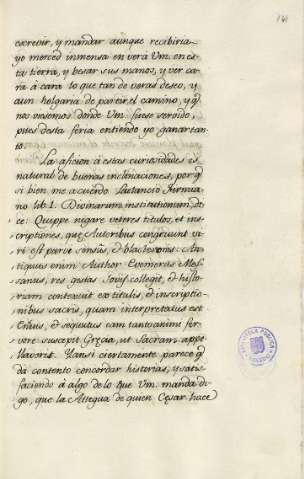 141
escrevir, y mandar aunque recibiria
yo merced inmensa en ver a Vm. en es
ta tierra, y besar sus manos, y ver ca
ra à cara lo que tan de veras deseo, y
aun holgaria de partir el camino, y q̃
nos viesemos donde Vm. fuese servido,
pues desta feria entiendo yo ganar tan
to.
La aficion à estas curiosidades es
natural de buenas inclinaciones, porq̃
si bien me acuerdo Lactancio Firmia
no lib. 1. Divinarum institutionum, di
ce: Quippe negare veteres titulos, et ins
criptiones, que Autoribus congruunt vi
ri est parve sinsus, et
tiquus enim Author Evemerus Mes
sanus, res gestas Jovis collegit, et histo
riam contexuit ex titulis, et inscriptio
nibus sacris, quam interpretatus est
Enius, et sequutus cum tanto animi fer
vore suscepit Grecia, ut Sacram appe
llavere. Y ansi ciertamente parece q̃
da contento concordar historias, y satis
faciendo à algo de lo que Vm. manda di
go, que la Attegua de quien Cesar hace